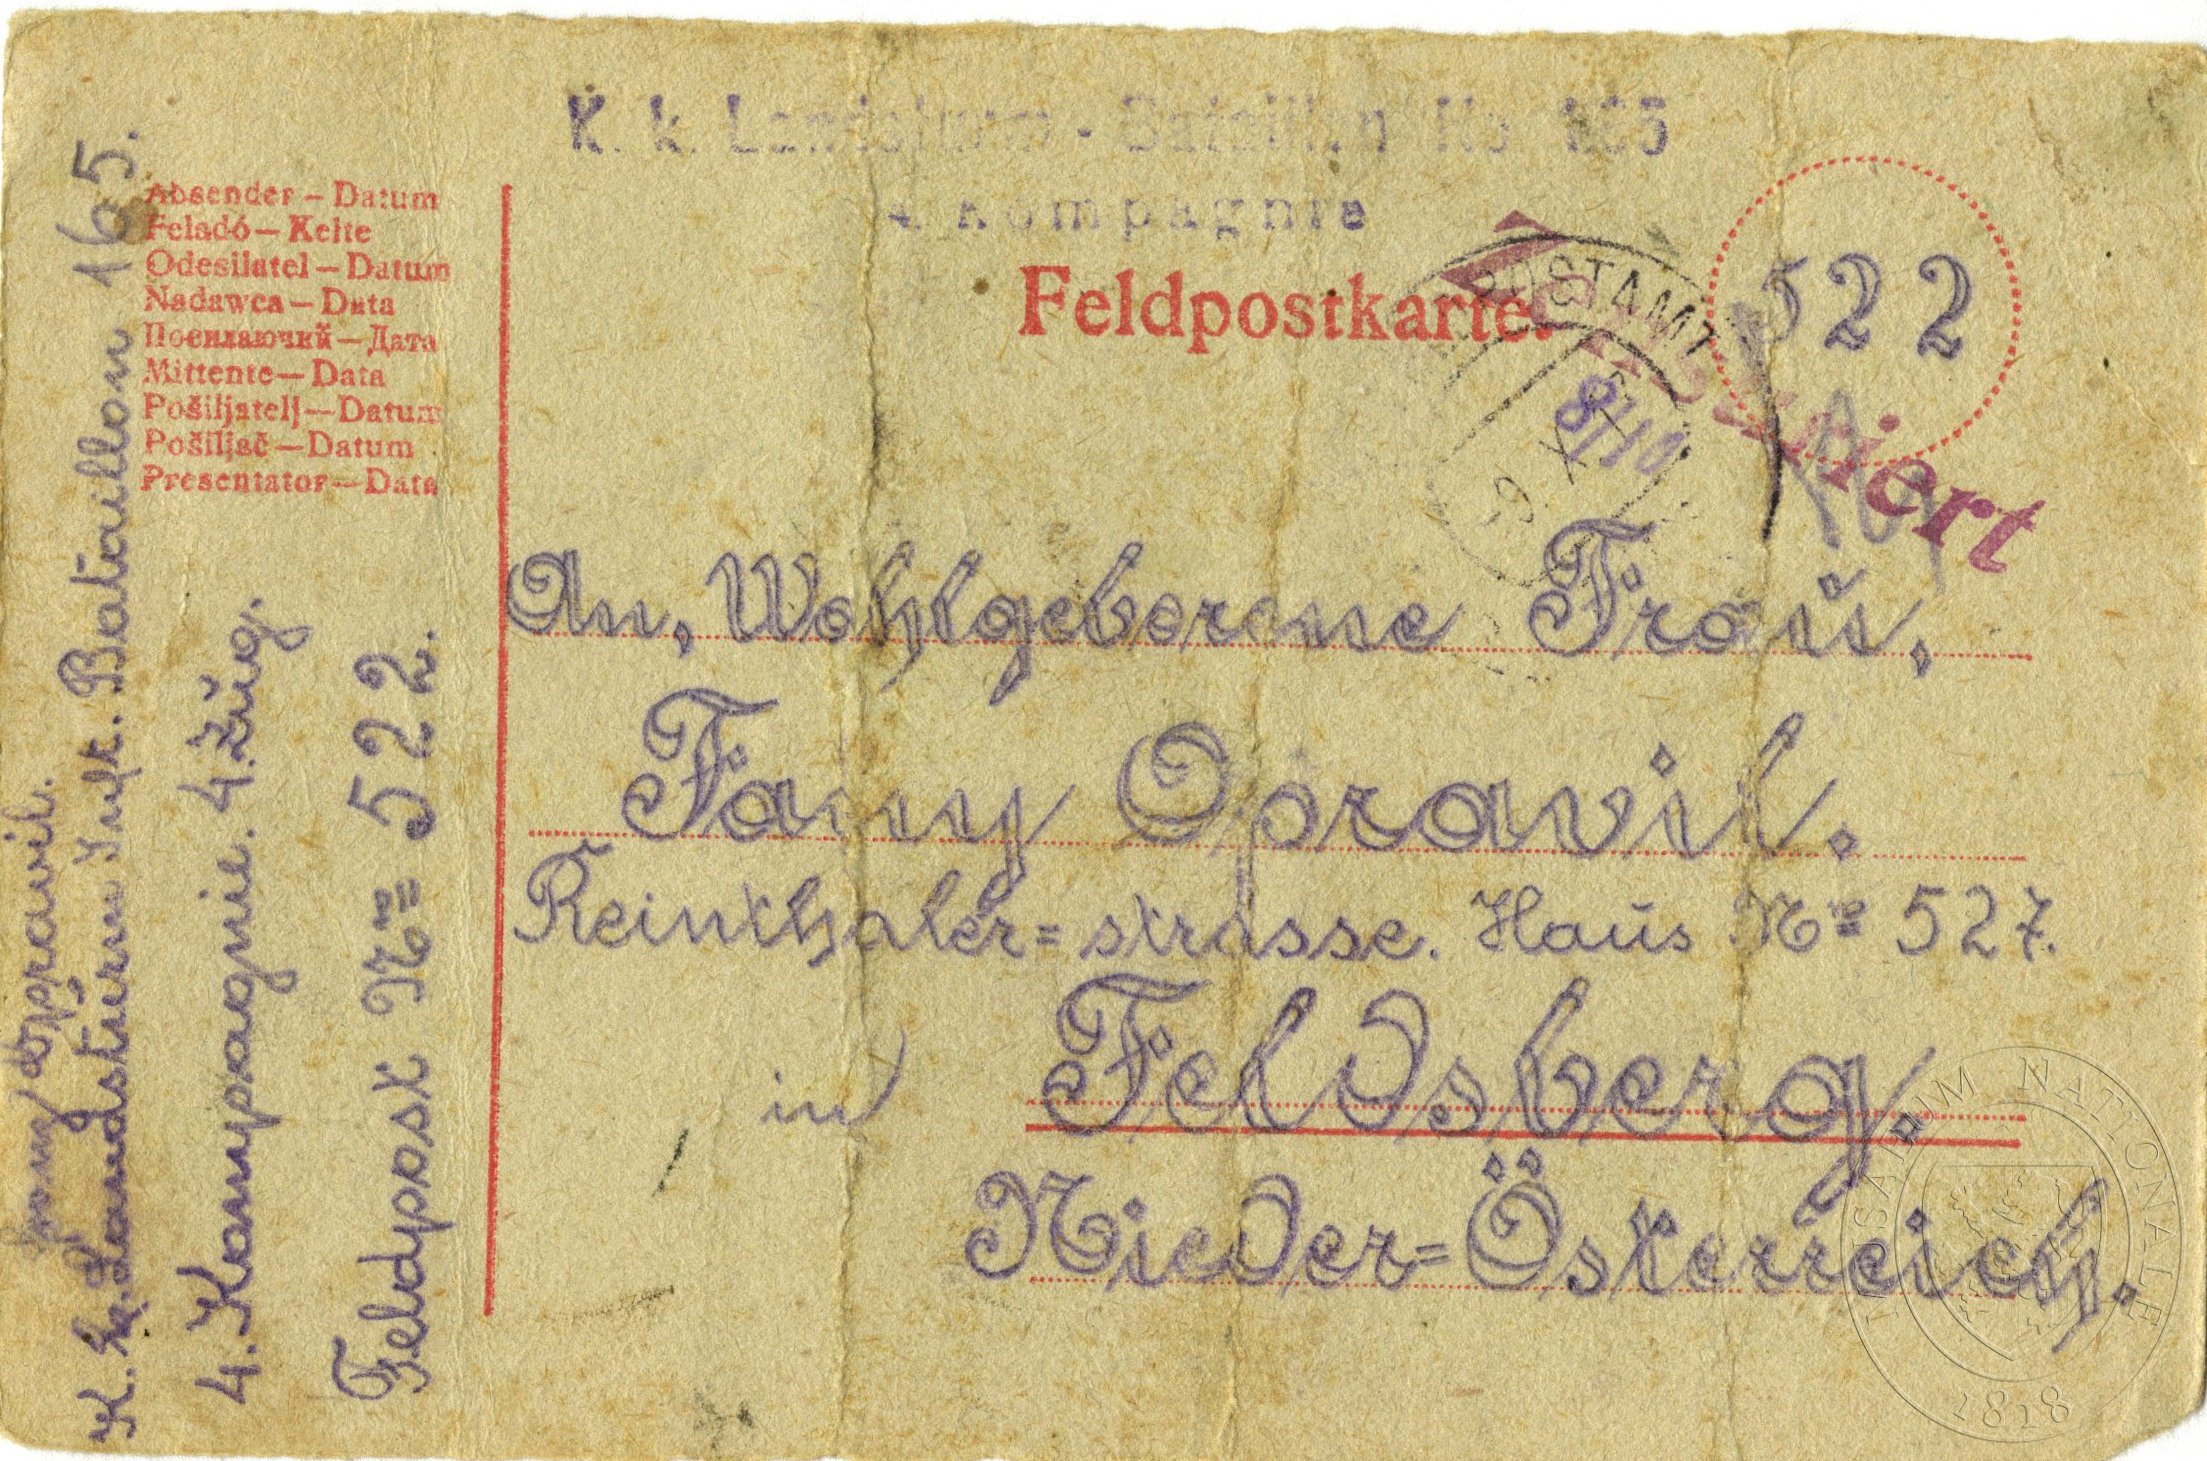 K. k. Landsturm - Bataillon No 165
4 Kompagnie
Feldpostkarte.
Zensuriert
POSTAMT
-9. X
8/10
522
Absender – Datum
Feladó – Kelte
Odesilatel – Datum
Nadawca – Data
Посилаючий – Дата
Mittente – Data
Pošiljatelj – Datum
Pošiljač – Datum
Presentator – Data
Oppravil.
K. k. Landsturm Inft. Bataillon 165.
4. Kompagnie. 4. Zŭg.
Feldpost No 522.
An, Wohlgeborene Fraŭ,
Fany Opravil.
Reinthaler=strasse. Haŭs No 527.
in
Feldsberg.
Nieder=Österreich.
MUSAEUM NATIONALE
1818